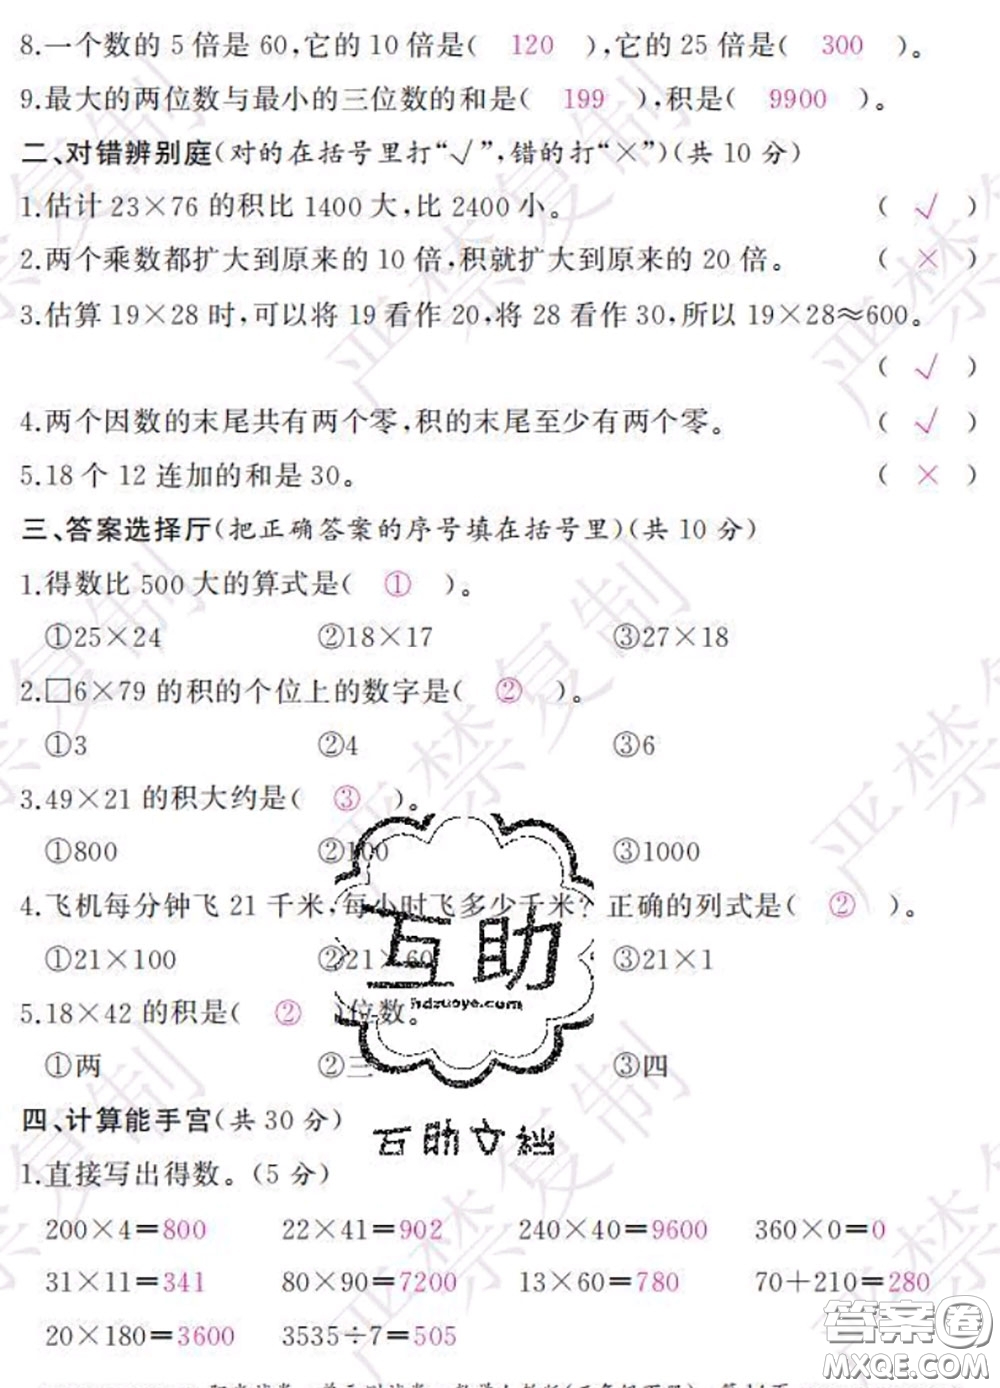 8.一个数的5倍是60,它的10倍是( 120 ),它的25倍是( 300 )。
9.最大的两位数与最小的三位数的和是( 199 ),积是( 9900 )。
二、对错辨别庭(对的在括号里打“√”,错的打“×”)(共10分)
1.估计23×76的积比1400大,比2400小。 ( √ )
2.两个乘数都扩大到原来的10倍,积就扩大到原来的20倍。 ( × )
3.估算19×28时,可以将19看作20,将28看作30,所以19×28≈600。
( √ )
4.两个因数的末尾共有两个零,积的末尾至少有两个零。 ( √ )
5.18个12连加的和是30。 ( × )
三、答案选择厅(把正确答案的序号填在括号里)(共10分)
1.得数比500大的算式是( ① )。
①25×24 ②18×17 ③27×18
2.□6×79的积的个位上的数字是( ② )。
①3 ②4 ③6
3.49×21的积大约是( ③ )。
①800 ②100 ③1000
4.飞机每分钟飞21千米,每小时飞多少千米?正确的列式是( ② )。
①21×100 ②21×60 ③21×1
互助
hdzuoye.com
5.18×42的积是( ② )位数。
①两 ②三 ③四
四、计算能手宫(共30分)
互助文档
1.直接写出得数。(5分)
200×4=800 22×41=902 240×40=9600 360×0=0
31×11=341 80×90=7200 13×60=780 70+210=280
20×180=3600 3535÷7=505
答案圈
MXQE.COM
严禁复制